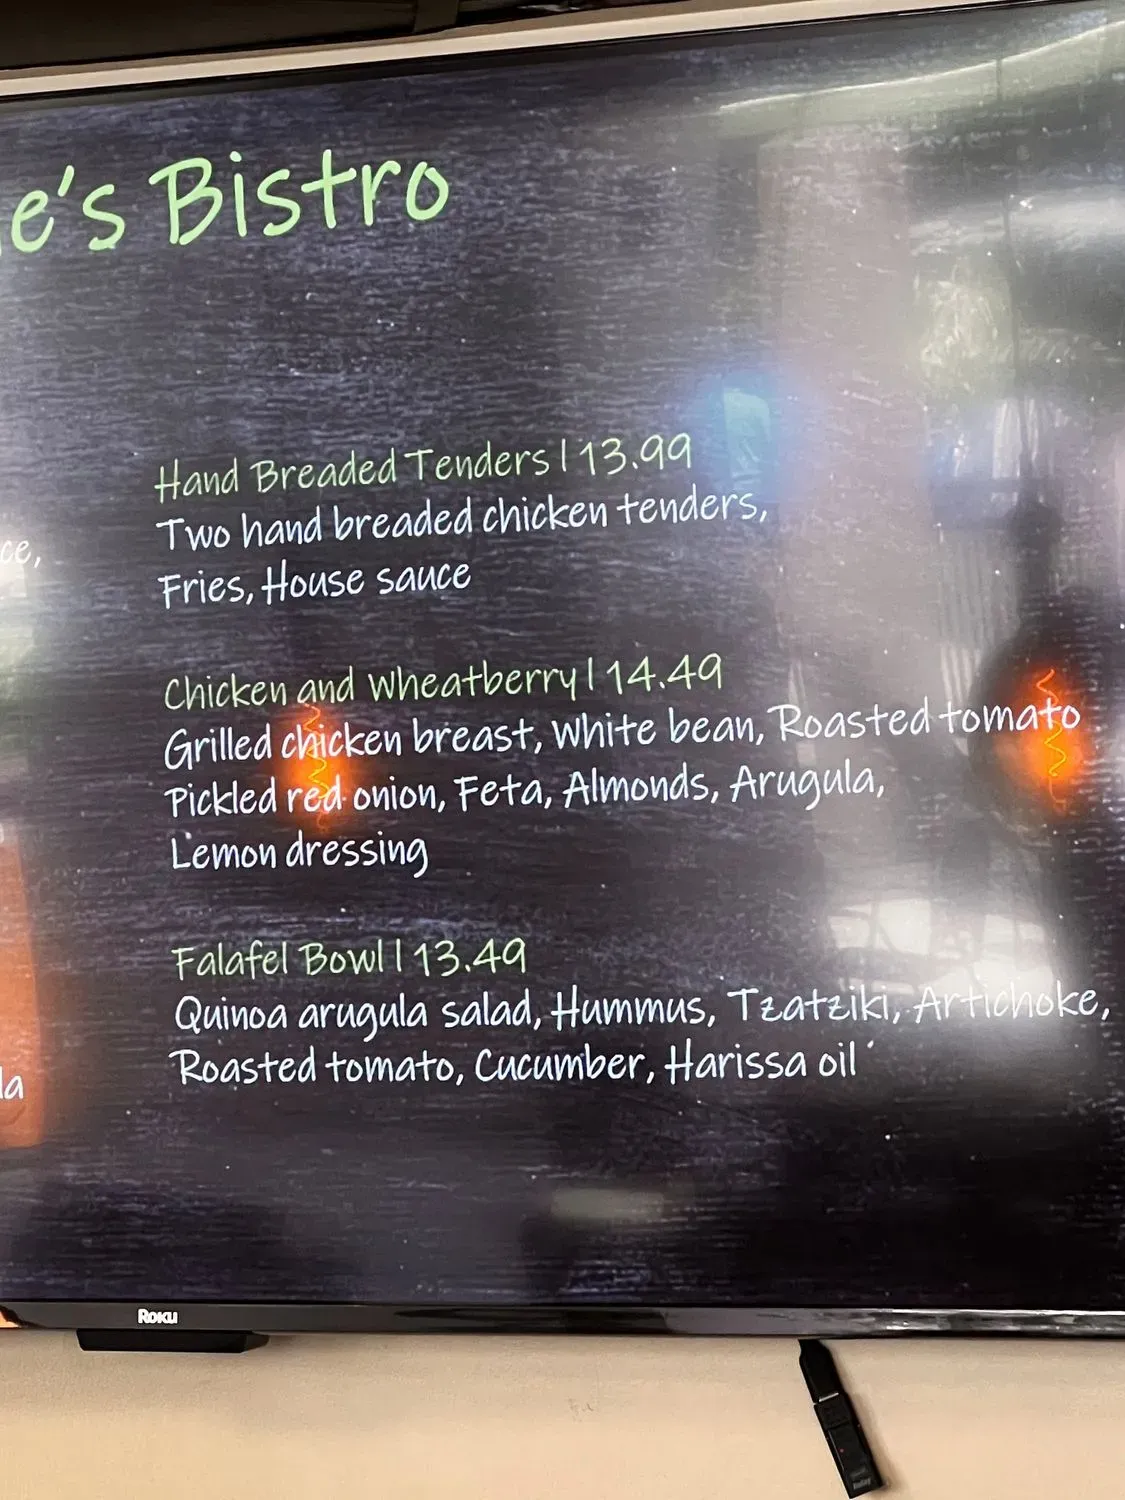 e's Bistro
Hand Breaded Tenders | 13.99
Two hand breaded chicken tenders,
Fries, House sauce
ce,
Chicken and Wheatberry | 14.49
Grilled chicken breast, White bean, Roasted tomato
Pickled red onion, Feta, Almonds, Arugula,
Lemon dressing
Falafel Bowl | 13.49
Quinoa arugula salad, Hummus, Tzatziki, Artichoke,
Roasted tomato, Cucumber, Harissa oil
la
Roku